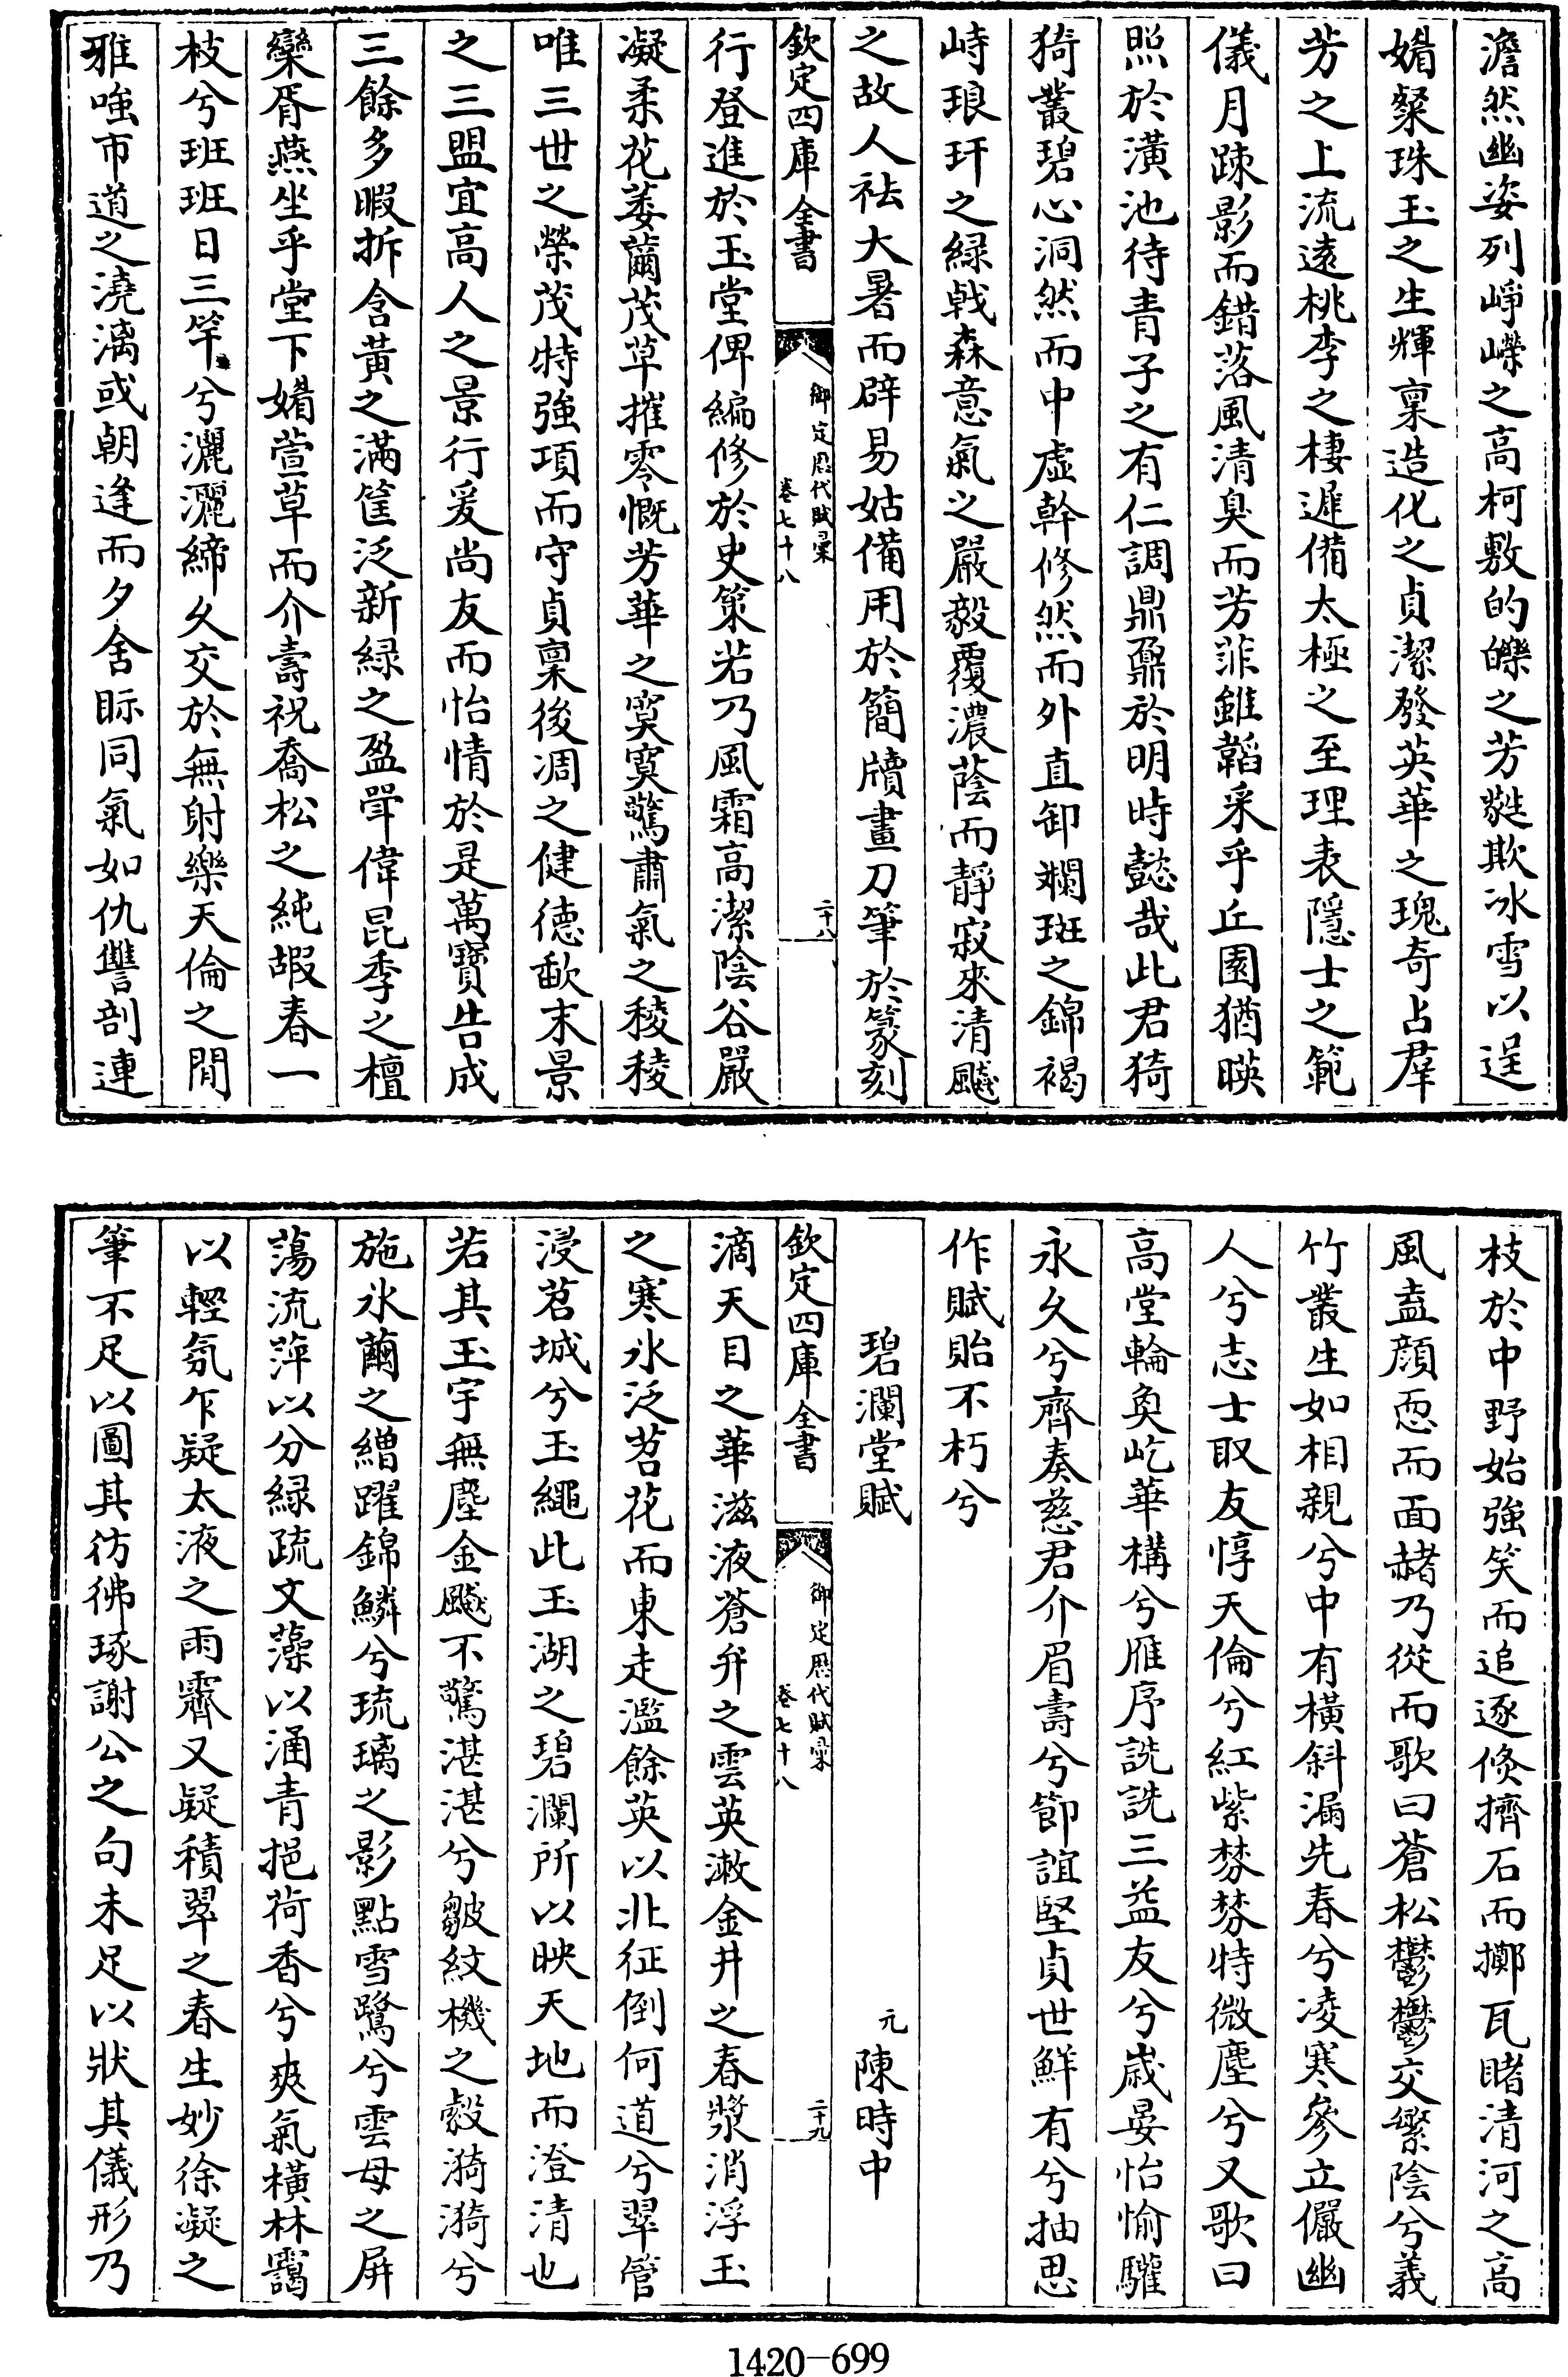 澹然幽姿列崢嶸之高柯敷的皪之芳蕤欺冰雪以逞
媚粲珠玉之生輝稟造化之貞潔發英華之瑰奇占羣
芳之上流遠桃李之棲遲備太極之至理表隱士之範
儀月踈影而錯落風清臭而芳菲雖韜采乎丘園猶暎
照於潢池待青子之有仁調鼎鼐於明時懿哉此君猗
猗叢碧心洞然而中虛幹修然而外直卸斕斑之錦褐
峙琅玕之緑戟森意氣之嚴毅覆濃蔭而靜寂來清飈
之故人祛大暑而辟易姑備用於簡牘畫刀筆於篆刻
欽定四庫全書
御定歴代賦彚
卷七十八
二十八
行登進於玉堂俾編修於史策若乃風霜高潔陰谷嚴
凝柔花萎薾茂草摧零慨芳華之寞寞驚肅氣之稜稜
唯三世之榮茂特強項而守貞稟後凋之健德歃末景
之三盟宜高人之景行爰尚友而怡情於是萬寶告成
三餘多暇拆含黃之滿筐泛新緑之盈斝偉昆季之檀
欒胥燕坐乎堂下媚萱草而介壽祝喬松之純嘏春一
枝兮班班日三竿兮灑灑締久交於無射樂天倫之閒
雅嗤市道之澆漓或朝逢而夕舍眎同氣如仇讐剖連
枝於中野始強笑而追逐倐擠石而擲瓦睹清河之高
風盍顔恧而面赭乃從而歌曰蒼松鬱鬱交繁陰兮義
竹叢生如相親兮中有橫斜漏先春兮凌寒參立儼幽
人兮志士取友惇天倫兮紅紫棼棼特微塵兮又歌曰
高堂輪奐屹華構兮雁序詵詵三益友兮歲晏怡愉驩
永久兮齊奏慈君介眉壽兮節誼堅貞世鮮有兮抽思
作賦貽不朽兮
碧瀾堂賦 元 陳時中
欽定四庫全書
御定歴代賦彚
卷七十八
二十九
滴天目之華滋液蒼弁之雲英漱金井之春漿消浮玉
之寒氷泛苕花而東走濫餘英以北征倒何道兮翠管
浸苕城兮玉繩此玉湖之碧瀾所以映天地而澄清也
若其玉宇無塵金飈不驚湛湛兮皺紋機之縠漪漪兮
施氷蠒之繒躍錦鱗兮琉璃之影點雪鷺兮雲母之屏
蕩流萍以分緑疏文藻以涌青挹荷香兮爽氣橫林靄
以輕氛乍疑太液之雨霽又疑積翠之春生妙徐凝之
筆不足以圖其彷彿琢謝公之句未足以狀其儀形乃
1420—699